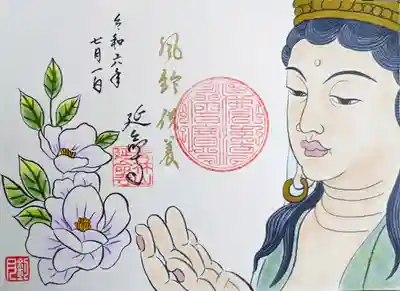 風鈴供養
延命寺
令和六年
七月一日